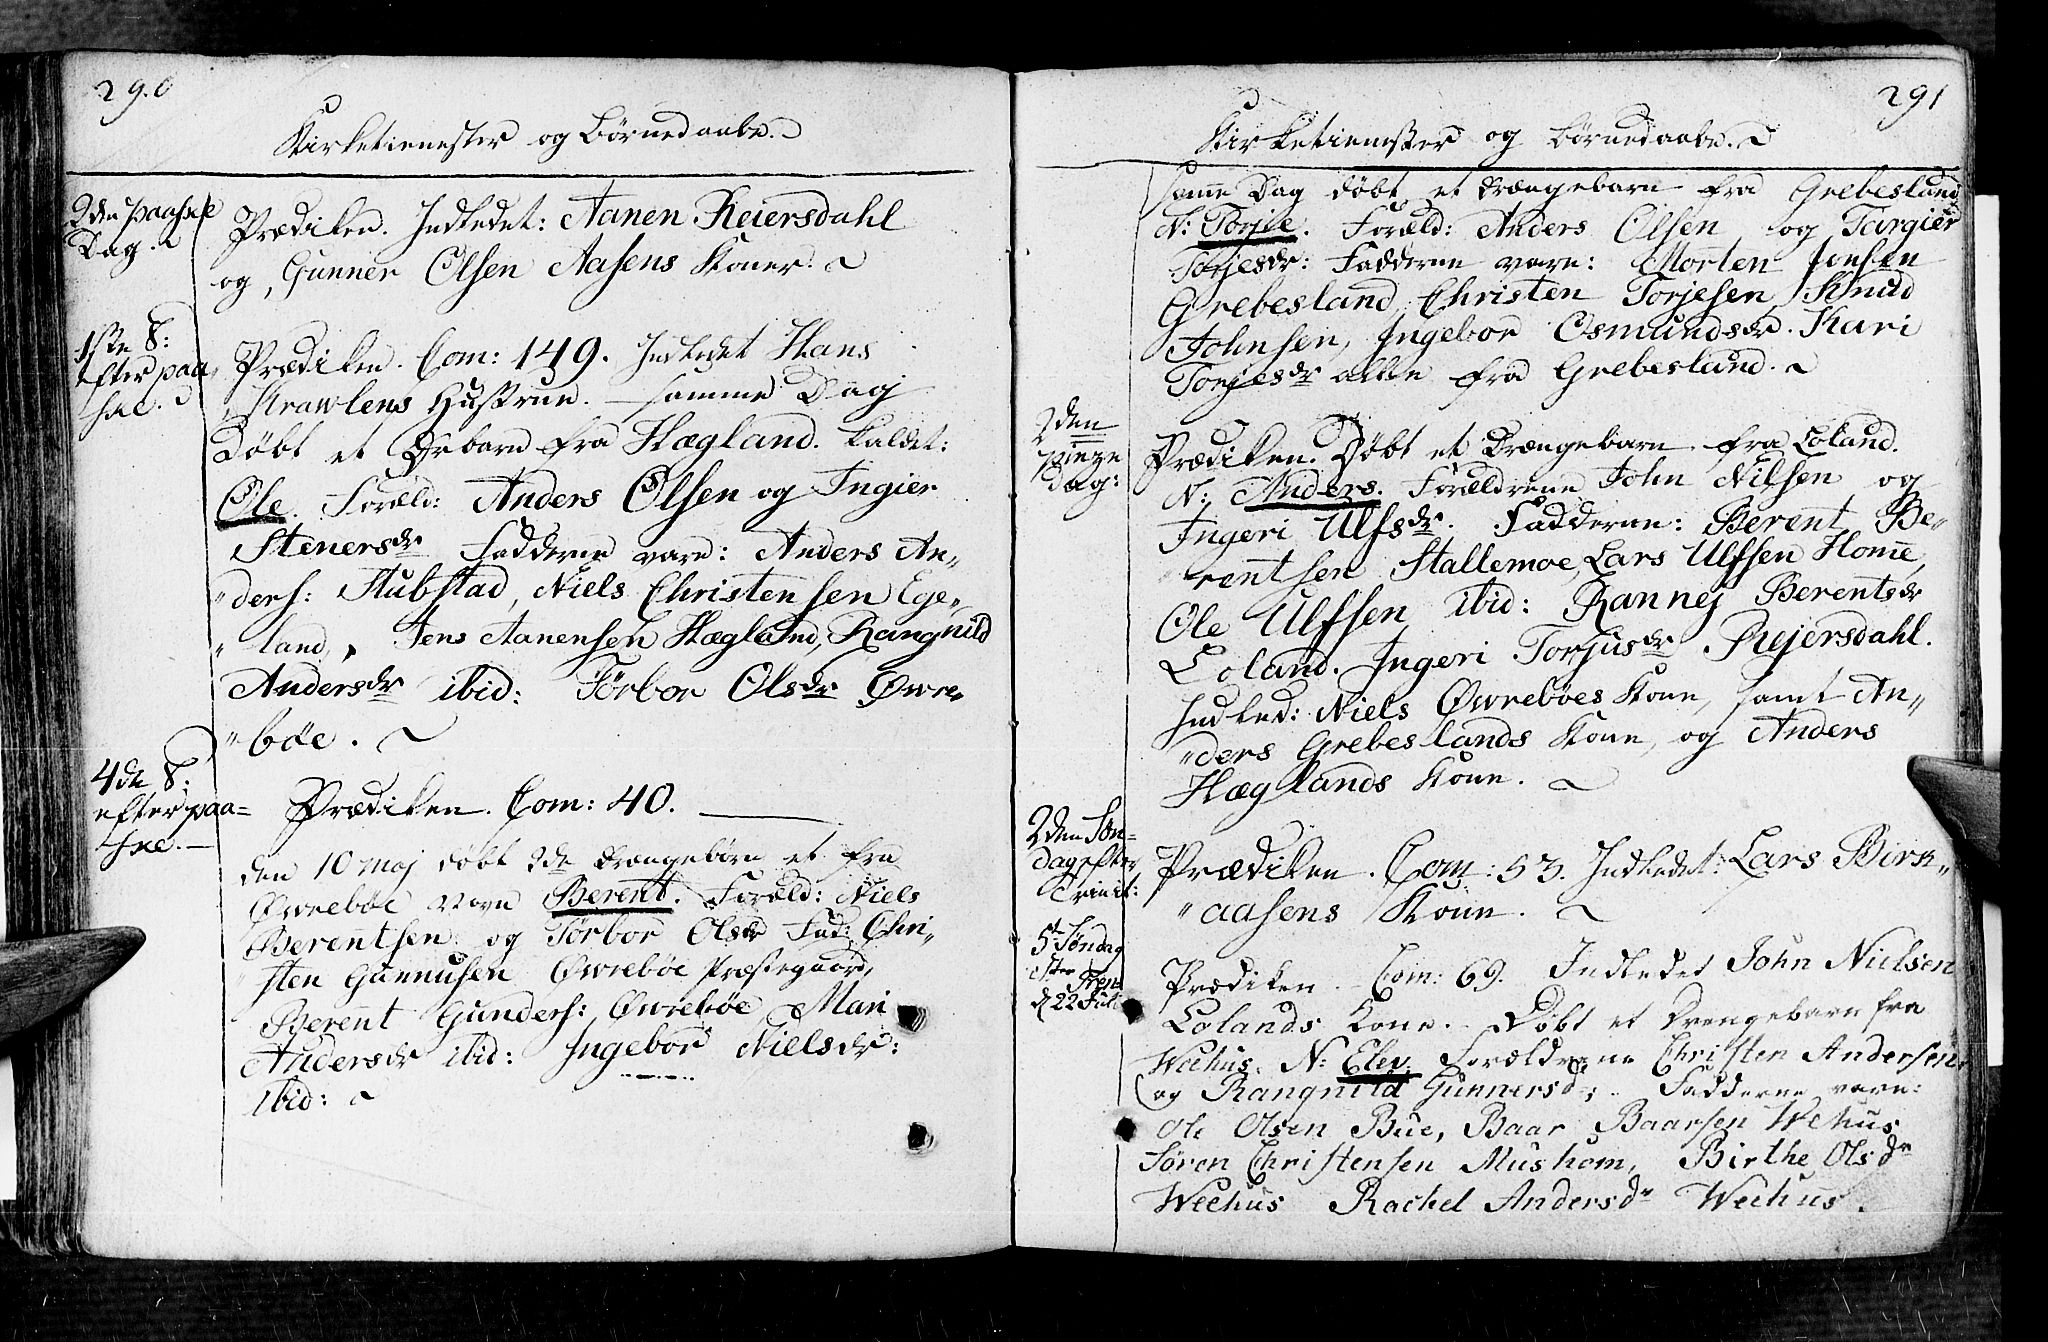 290
Kirketienester og Børnedaabe.
2den paaske
Dag.
Prædiken. Indledet: Aanen Reiersdahl
og, Gunner Olsen Aasens Koner.
1ste S:
efter paa-
ske.
Prædiken. Com: 149. Indledet Hans
Strawlens Hustrue. Samme Dag
Døbt et Drbarn fra Hægland. kaldet:
Ole. Foræld: Anders Olsen og Ingier
Stenersdr Fadderne vare: Anders An„
„ders: Stubstad, Niels Christensen Ege„
„land, Jens Aanensen Hægland, Rangnild
Andersdr ibid: Törbor Olsdr Øwre„
„böe.
4de S:
efter paa=
ske.
Prædiken. Com: 40.
den 10 maj döbt 2de Drængebörn et fra
Øwreböe Navn Berent. Foræld: Niels
Berentsen og Törbor Olsdr Fad: Chri„
„sten Gunnusen Øwreböe Præstegaard,
Berent Gunders: Øwreböe, Mari
Andersdr ibid: Ingebor Nielsdr:
ibid:
291
Kirketienester og Börnedaabe.
Same Dag döbt et Drængebarn fra Grebesland
N: Torjie. Foræld: Anders Olsen og Targier
Torjesdr: Fadderne vare: Morten Jensen
Grebesland, Christen Torjesen, Knud
Johnsen, Ingebor Osmundsdr. Kari
Torjesdr alle fra Grebesland.
2den
pinze
Dag:
Prædiken. Döbt et Drængebarn fra Loland.
N: Anders. Forældrene John Nilsen og
Ingeri Ulfsdr. Fadderne: Berent Be„
„rentsen Stallemoe, Lars Ulfsen Home,
Ole Ulfsen ibid: Rannej Berentsdr
Loland. Ingeri Torjusdr Rejersdahl.
Indled: Niels Øwreböes Kone, samt An„
„ders Grebeslands Kone, og Anders
Hæglands Kone.
2den Søn=
dag efter
Trinit:
Prædiken. Com: 53. Indledet: Lars Birk„
„aasens Kone.
5te Søndag
efter Tren
d 22 Juli
Prædiken. Com: 69. Indledet John Nielsen
Lolands Kone. Döbt et Drengebarn fra
Weehus. N: Elev. Forældrene Christen Andersen
og Rangnild Gunnersd: Fadderne vare:
Ole Olsen Bue, Baar Baarsen Wehus
Sören Christensen Mushom, Birthe Olsdr
Weehus Rachel Andersdr Weehus.